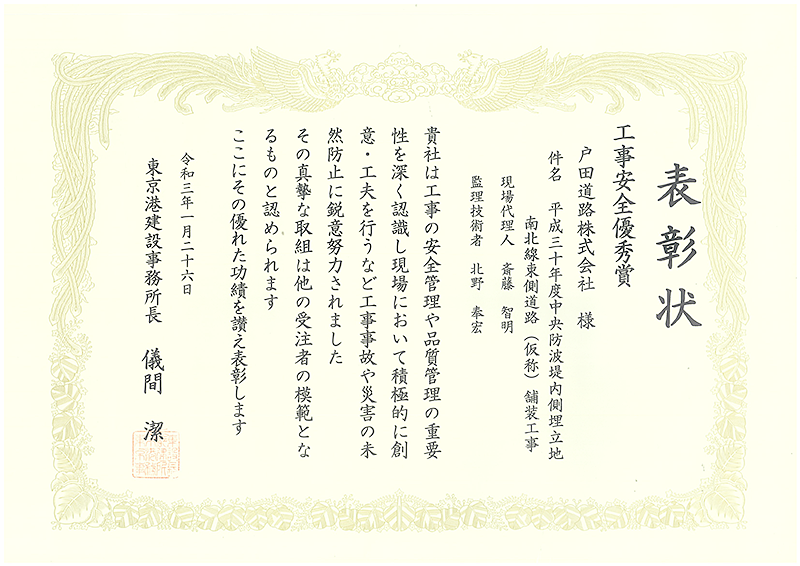 表彰状
工事安全優秀賞
戸田道路株式会社 様
件名 平成三十年度中央防波堤内側埋立地
南北線東側道路(仮称)舗装工事
現場代理人 斎藤 智明
監理技術者 北野 奉宏
貴社は工事の安全管理や品質管理の重要
性を深く認識し現場において積極的に創
意・工夫を行うなど工事事故や災害の未
然防止に鋭意努力されました
その真摯な取組は他の受注者の模範とな
るものと認められます
ここにその優れた功績を讃え表彰します
令和三年一月二十六日
東京港建設事務所長 儀間 潔